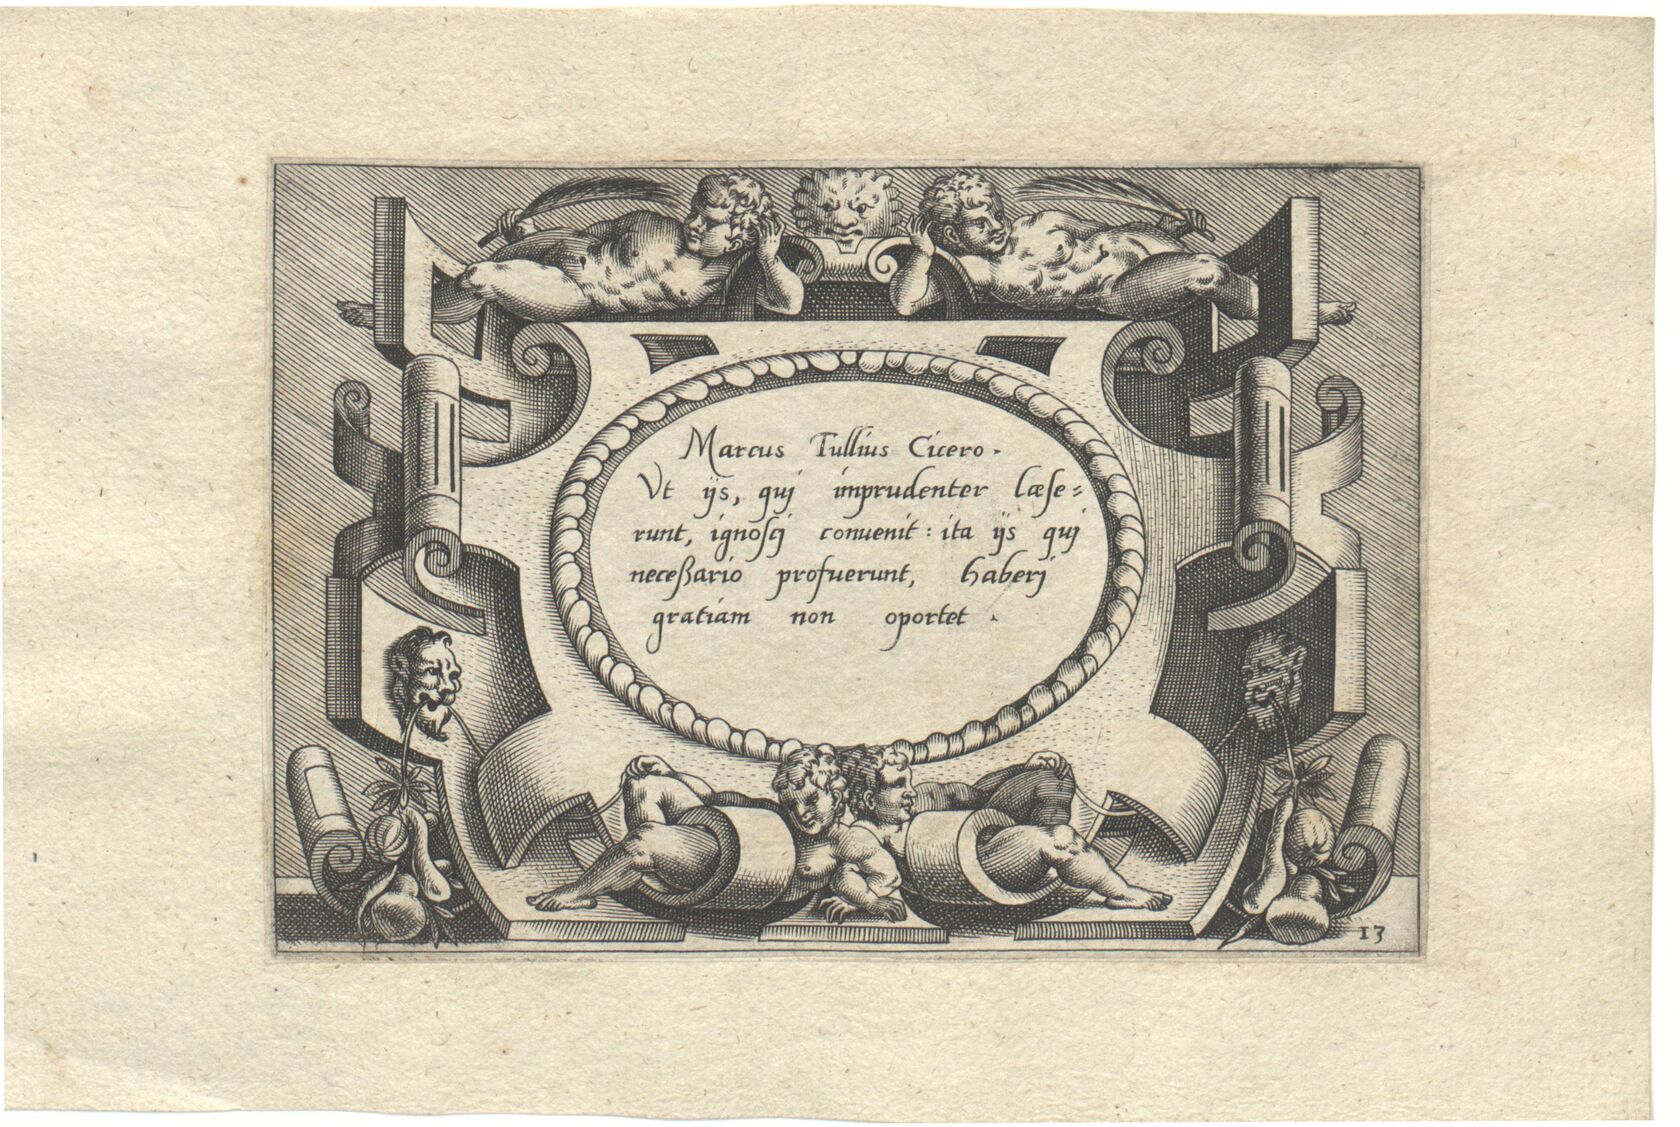 Marcus Tullius Cicero.
Vt ijs, quj imprudenter læse=
runt, ignoscj conuenit: ita ijs quj
neceßario profuerunt, haberj
gratiam non oportet.
13